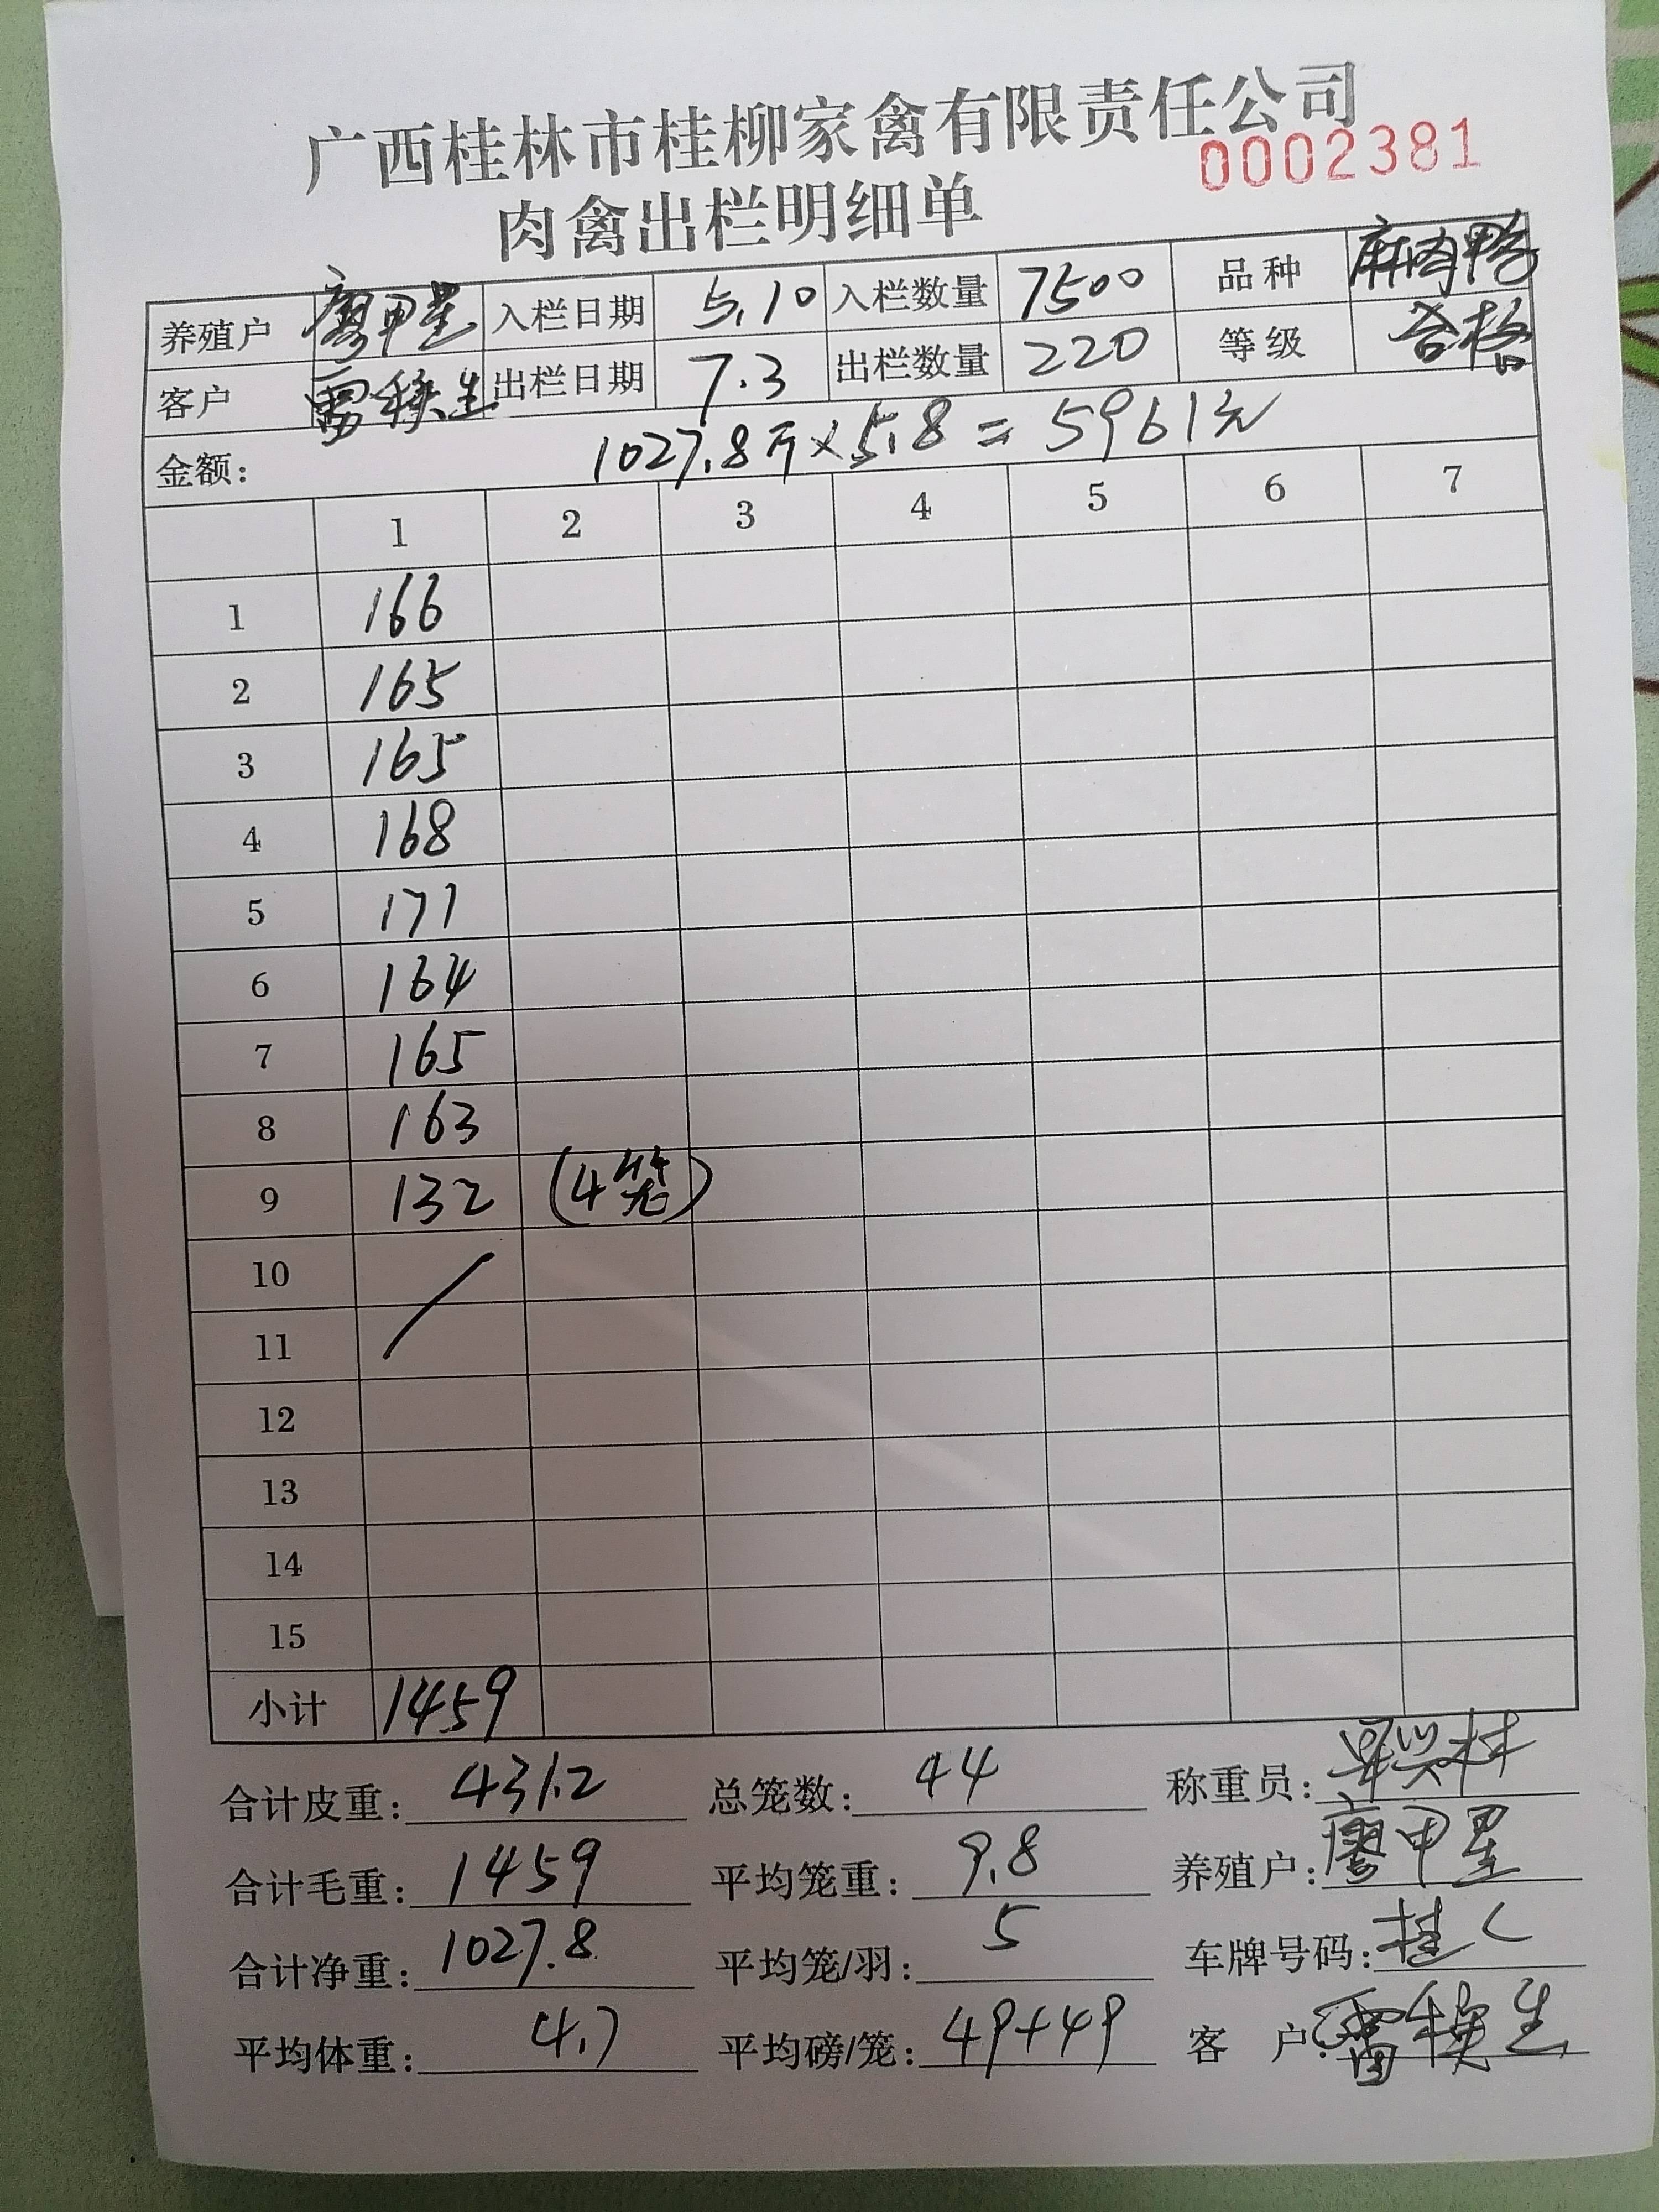 广西桂林市桂柳家禽有限责任公司
0002381
肉禽出栏明细单
养殖户 廖甲星 入栏日期 5.10 入栏数量 7500 品种 麻肉鸭
客户 雷 生 出栏日期 7.3 出栏数量 220 等级 合格
金额: 1027.8斤×5.8=5961元
1 2 3 4 5 6 7
1 166
2 165
3 165
4 168
5 171
6 164
7 165
8 163
9 132 (4笼)
10
11
12
13
14
15
小计 1459
合计皮重: 431.2 总笼数: 44 称重员: 兴林
合计毛重: 1459 平均笼重: 9.8 养殖户: 廖甲星
合计净重: 1027.8 平均笼/羽: 5 车牌号码: 桂C
平均体重: 4.7 平均磅/笼: 49+49 客 户: 雷 生